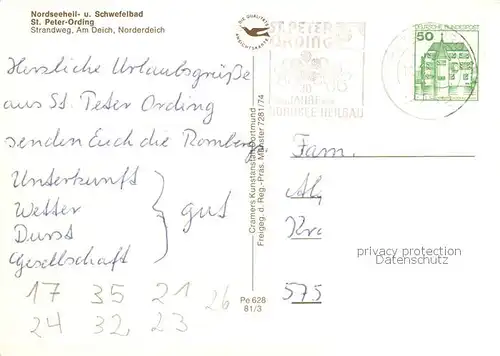 Nordseeheil- u. Schwefelbad
St. Peter-Ording
Strandweg, Am Deich, Norderdeich
DIE QUALITÄTS
ANSICHTSKARTE
ST. PETER
ORDING
JAHRE
NORDSEE HEILBAD
DEUTSCHE BUNDESPOST
50
Herzliche Urlaubsgrüße
aus St. Peter Ording
senden Euch die Romberg.
Unterkunft
Wetter
Durst
Gesellschaft
gut
17 35 21 26
24 32, 23
Cramers Kunstanstalt Dortmund
Freigeg. d. Reg.-Präs. Münster 7281/74
Pe 628
81/3
Fam.
575
privacy protection
Datenschutz